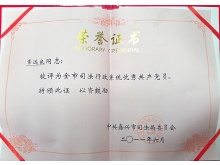 荣誉证书
HONORARY CREDENTIAL
同志：
被评为全市司法行政系统优秀共产党员。
特颁此证 以资鼓励
中共嘉兴市司法局委员会
二〇一一年六月